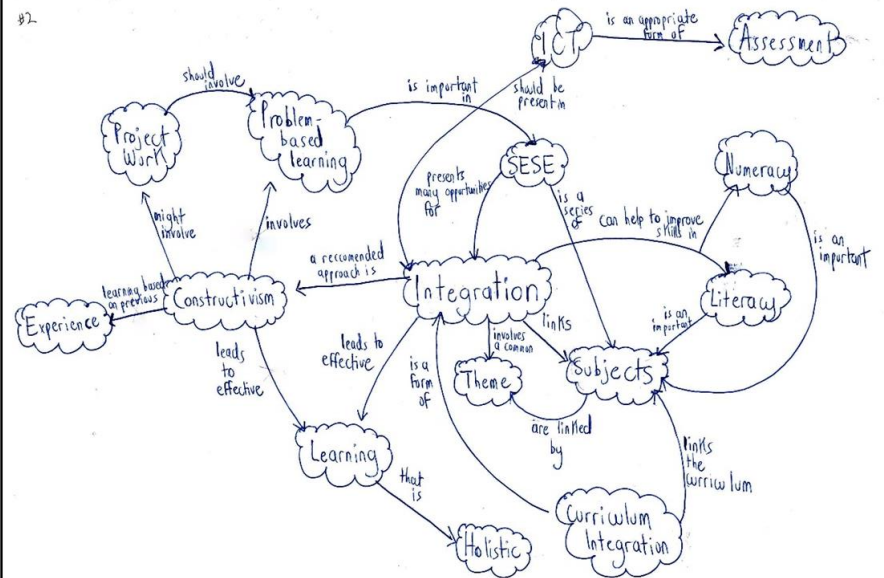 #2
ICT
is an appropriate
form of
Assessment
should
involve
Project
Work
Problem-
based
learning
is important
in
should be
present in
SESE
Numeracy
presents
many opportunities
for
is a
series
of
can help to improve
skills in
is an
important
might
involve
involves
a reccomended
approach is
Integration
Literacy
learning based
on previous
Constructivism
Experience
is an
important
leads
to
effective
leads to
effective
is a
form
of
involves
a common
links
Theme
Subjects
are linked
by
Learning
that
is
links
the
curriculum
Holistic
Curriculum
Integration